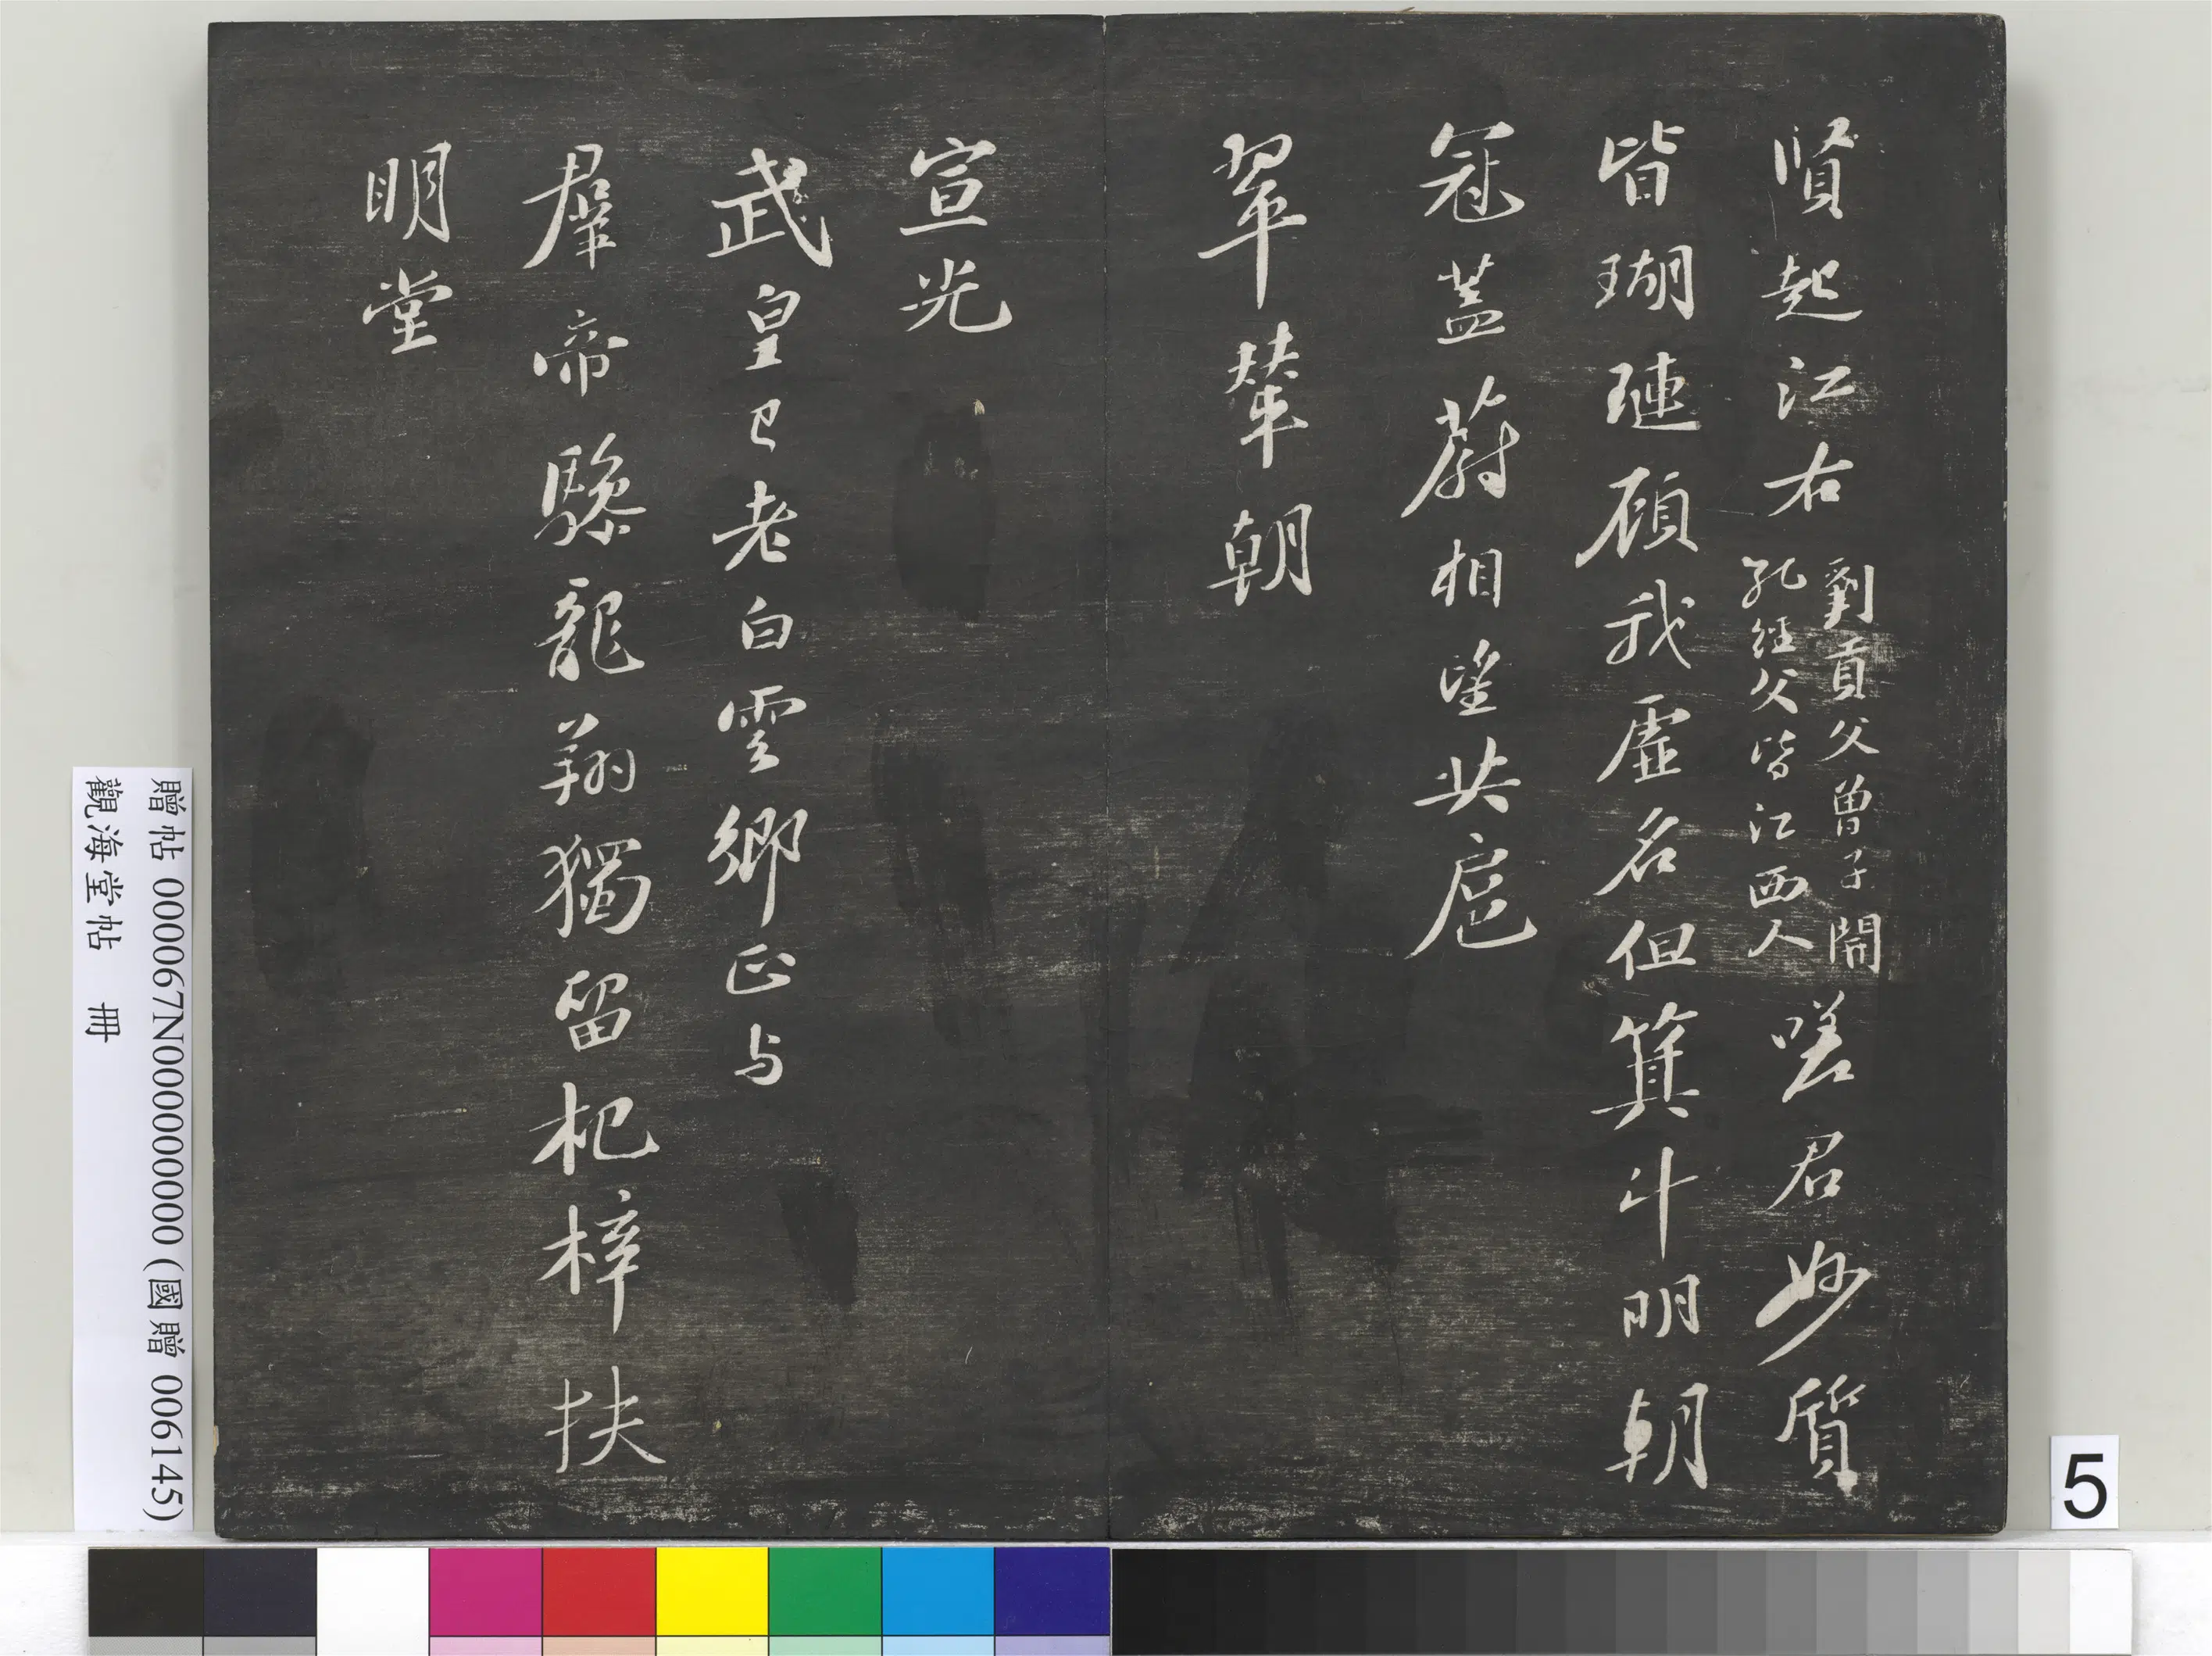 賢起江右
劉貢父曾子開
孔經父皆江西人
嗟君妙質
皆瑚璉顧我虛名但箕斗明朝
冠蓋蔚相望共扈
翠輦朝
宣光
武皇已老白雲鄉正与
羣帝驂龍翔獨留杞梓扶
明堂
贈帖 000067N000000000 (國贈 006145)
觀海堂帖 冊
5